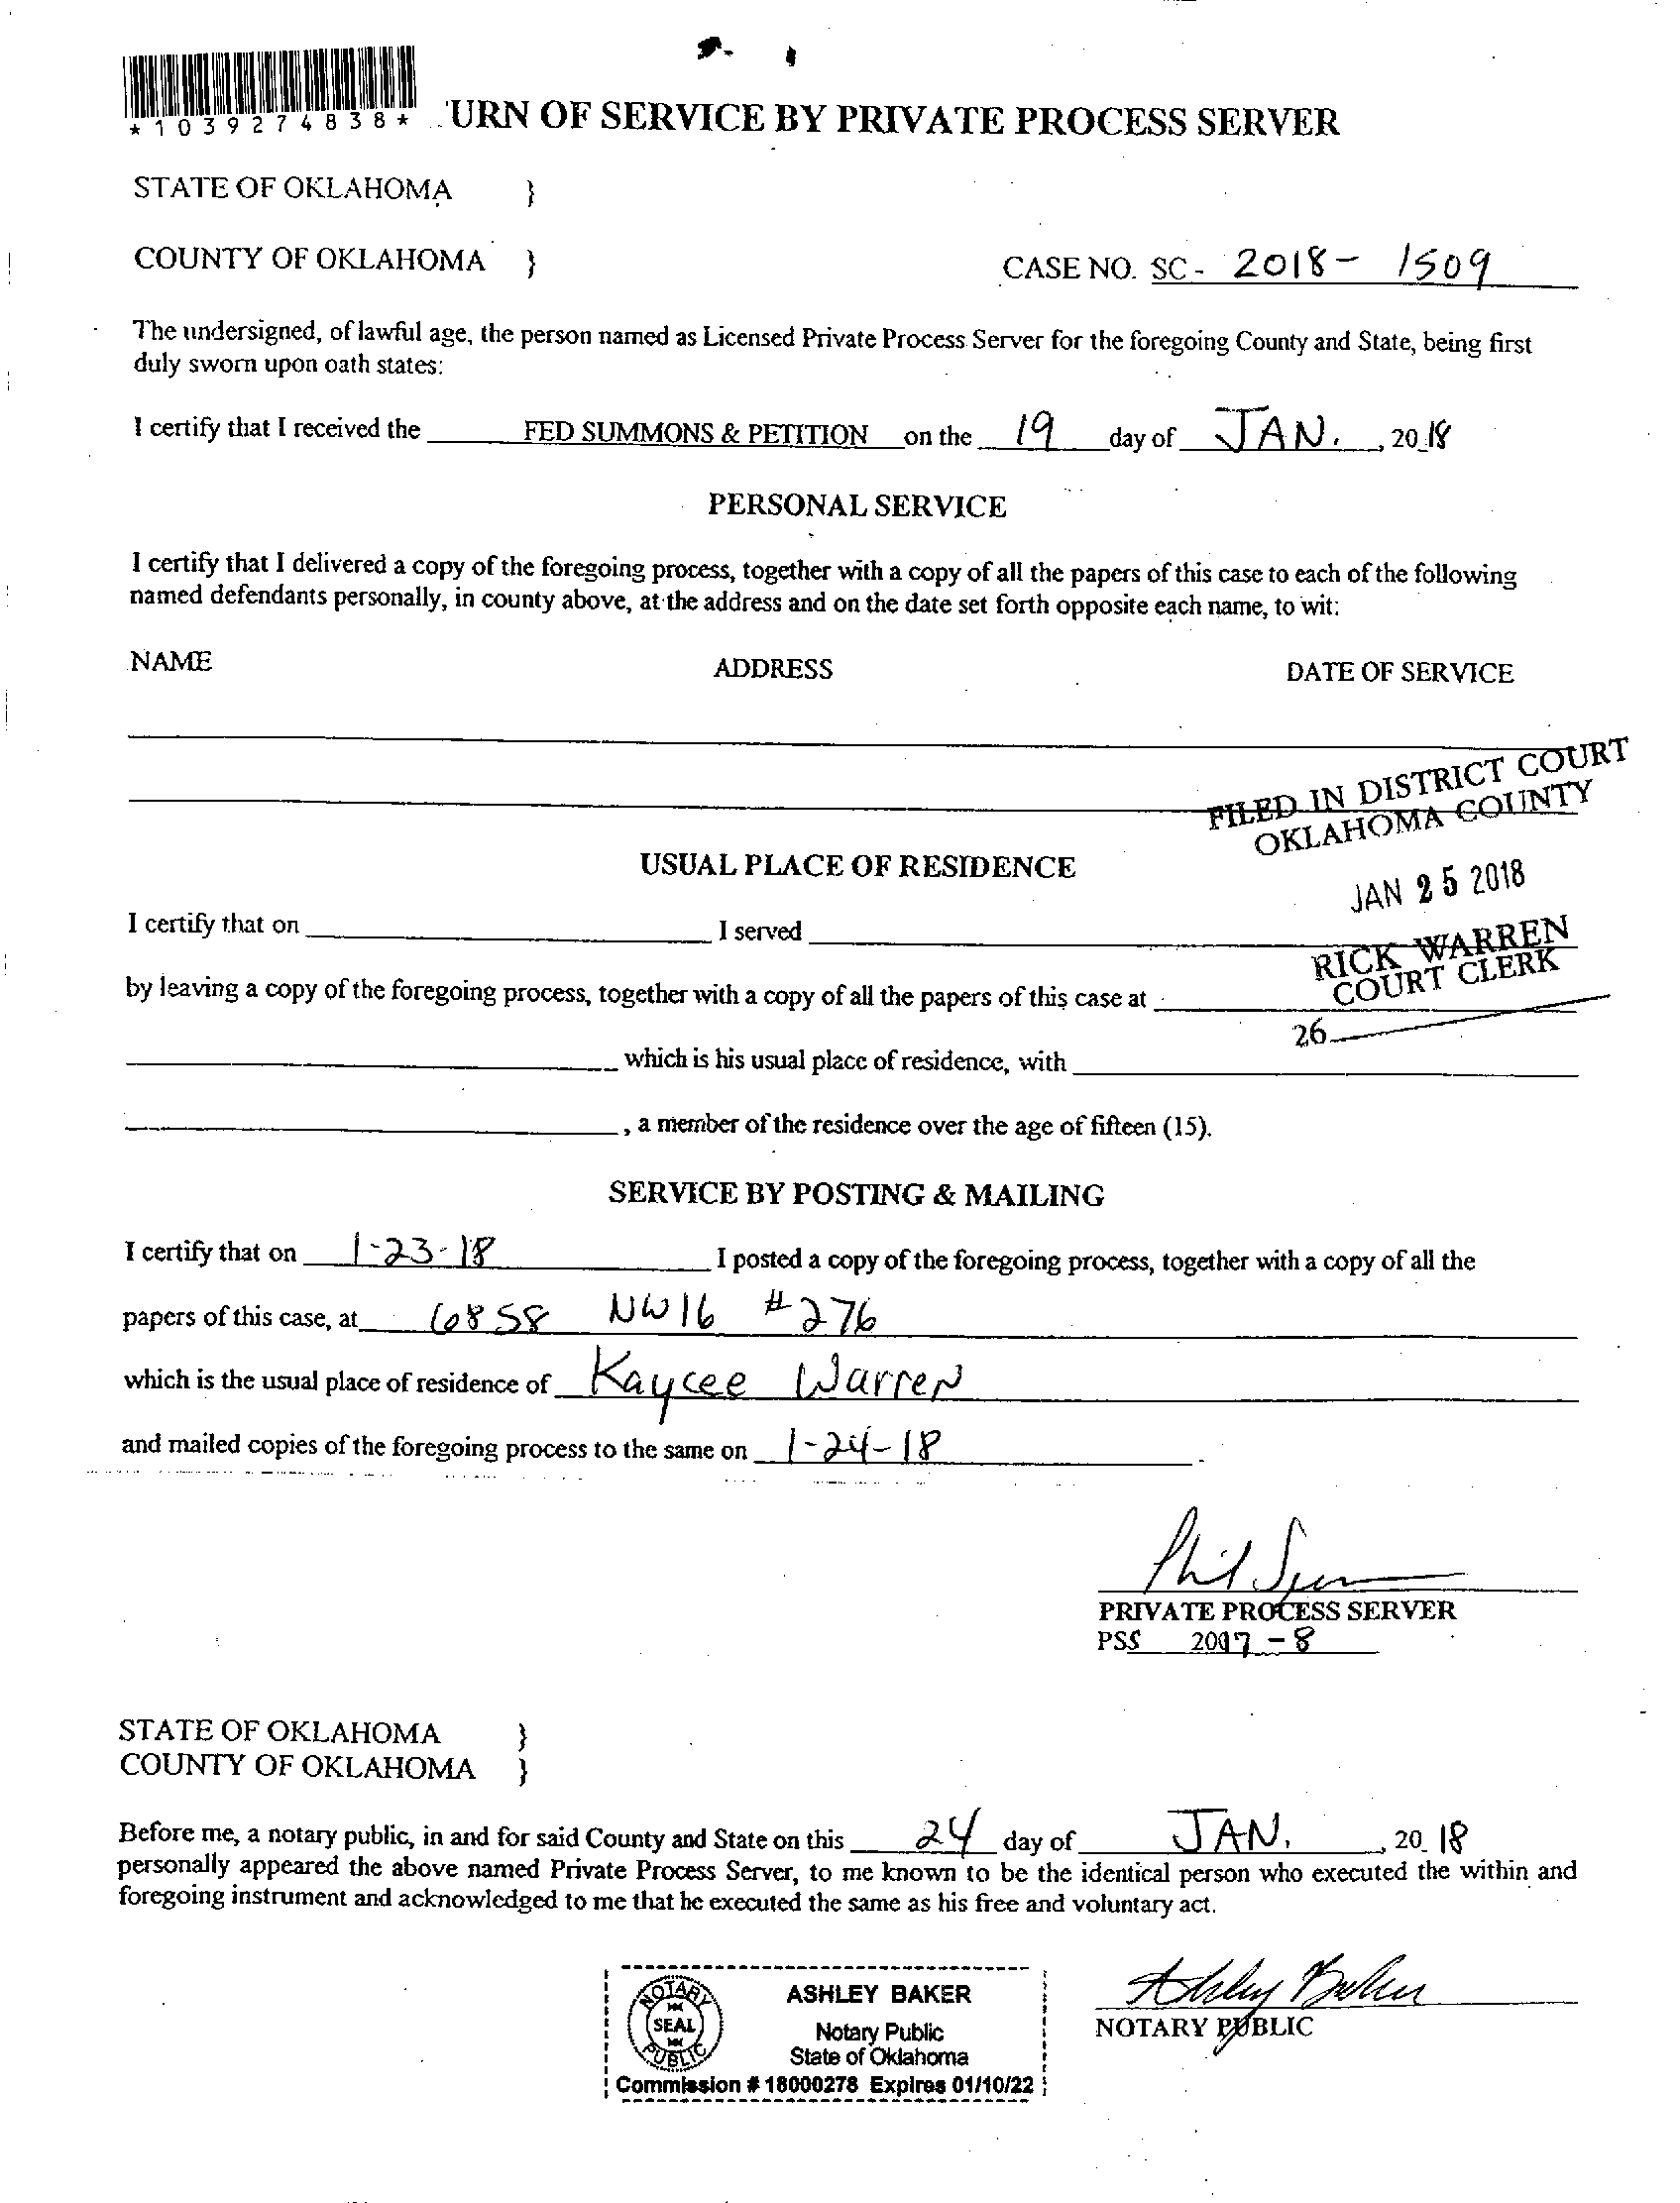 *1039274838*
URN OF SERVICE BY PRIVATE PROCESS SERVER
STATE OF OKLAHOMA }
COUNTY OF OKLAHOMA }
CASE NO. SC- 2018- 1509
The undersigned, of lawful age, the person named as Licensed Private Process Server for the foregoing County and State, being first
duly sworn upon oath states:
I certify that I received the FED SUMMONS & PETITION on the 19 day of JAN. , 2018
PERSONAL SERVICE
I certify that I delivered a copy of the foregoing process, together with a copy of all the papers of this case to each of the following
named defendants personally, in county above, at the address and on the date set forth opposite each name, to wit:
NAME ADDRESS DATE OF SERVICE
FILED IN DISTRICT COURT
OKLAHOMA COUNTY
JAN 25 2018
RICK WARREN
COURT CLERK
26
USUAL PLACE OF RESIDENCE
I certify that on I served
by leaving a copy of the foregoing process, together with a copy of all the papers of this case at
which is his usual place of residence, with
, a member of the residence over the age of fifteen (15).
SERVICE BY POSTING & MAILING
I certify that on 1-23-18 I posted a copy of the foregoing process, together with a copy of all the
papers of this case, at 6858 NW 16 #276
which is the usual place of residence of Kaycee Warren
and mailed copies of the foregoing process to the same on 1-24-18 .
PRIVATE PROCESS SERVER
PSS 2017-8
STATE OF OKLAHOMA }
COUNTY OF OKLAHOMA }
Before me, a notary public, in and for said County and State on this 24 day of JAN. , 20 18
personally appeared the above named Private Process Server, to me known to be the identical person who executed the within and
foregoing instrument and acknowledged to me that he executed the same as his free and voluntary act.
NOTARY
SEAL
PUBLIC
ASHLEY BAKER
Notary Public
State of Oklahoma
Commission # 18000278 Expires 01/10/22
Ashley Baker
NOTARY PUBLIC